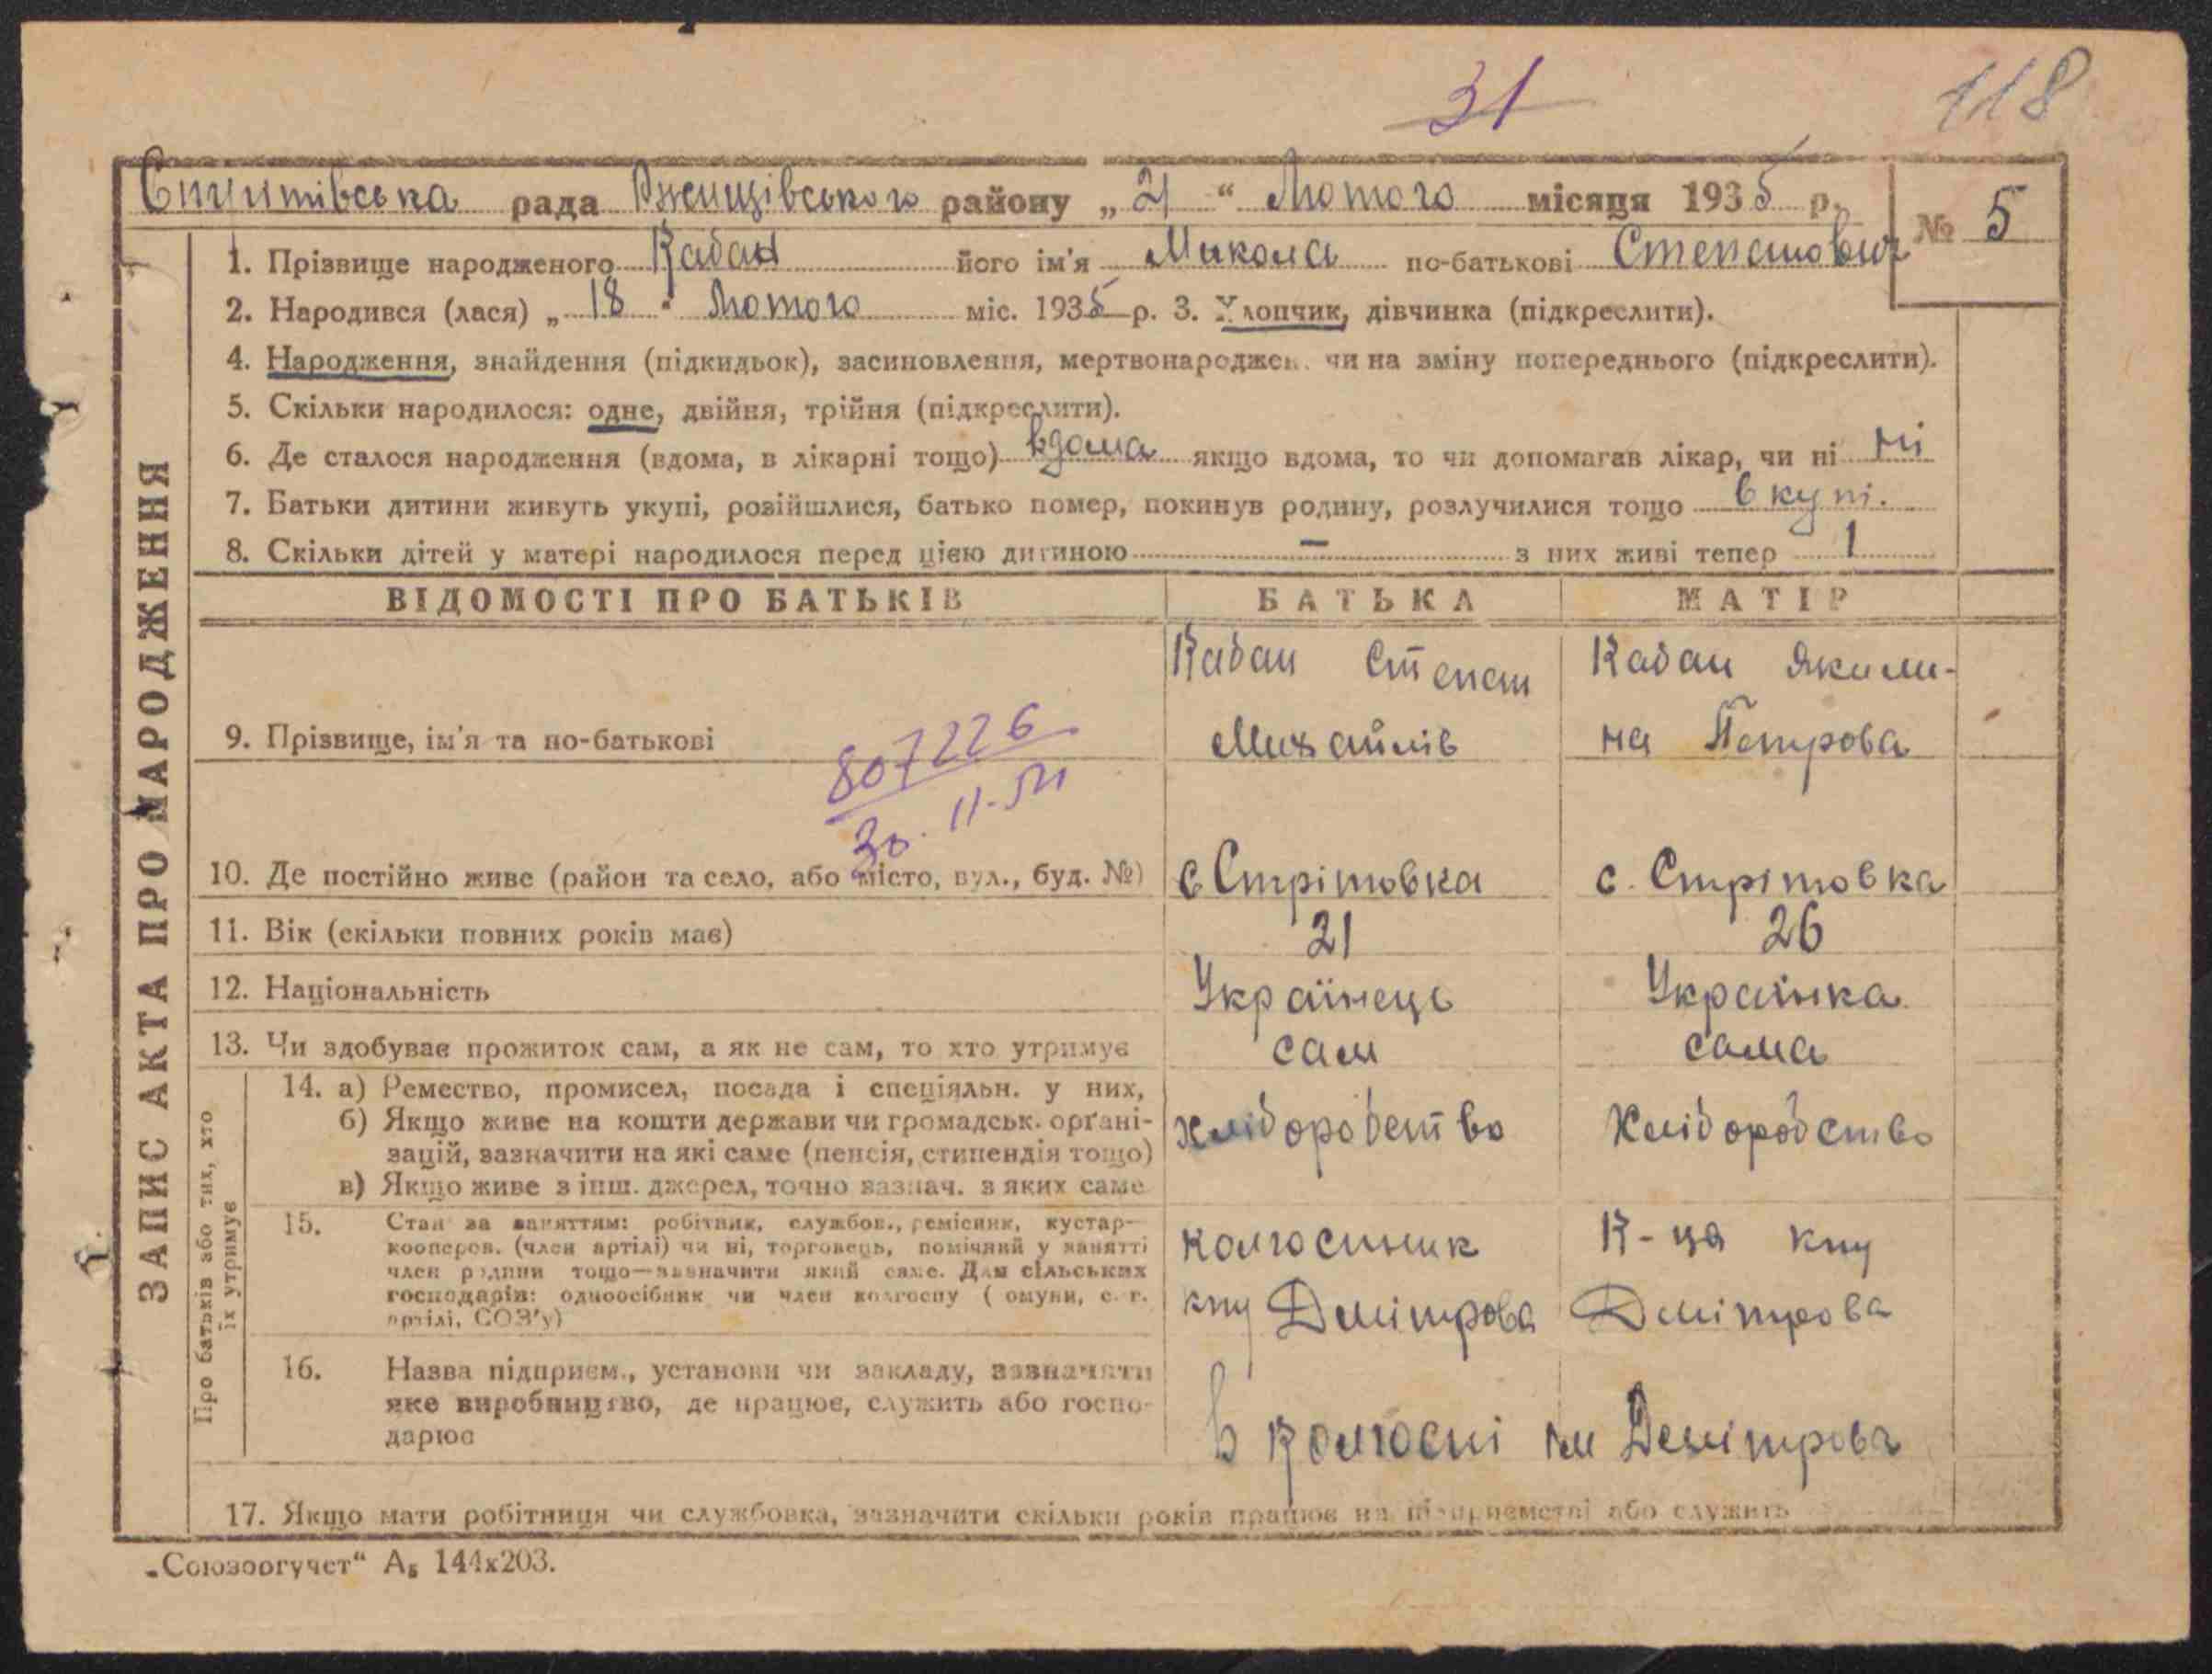 31
118
Стритівська рада Ржищівського району „ 21 “ Лютого місяця 1935 р.
№ 5
1. Прізвище народженого Кабан його ім'я Микола по-батькові Степанович
2. Народився (лася) „ 18 “ Лютого міс. 1935 р. 3. Хлопчик, дівчинка (підкреслити).
4. Народження, знайдення (підкидьок), засиновлення, мертвонароджен. чи на зміну попереднього (підкреслити).
5. Скільки народилося: одне, двійня, трійня (підкреслити).
6. Де сталося народження (вдома, в лікарні тощо) вдома якщо вдома, то чи допомагав лікар, чи ні ні
7. Батьки дитини живуть укупі, розійшлися, батько помер, покинув родину, розлучилися тощо вкупі.
8. Скільки дітей у матері народилося перед цією дитиною – з них живі тепер 1
ЗАПИС АКТА ПРО НАРОДЖЕННЯ
ВІДОМОСТІ ПРО БАТЬКІВ БАТЬКА МАТІР
Кабан Степан Кабан Якили-
9. Прізвище, ім'я та по-батькові Михайлів на Петрова
807226
30. 11-51
10. Де постійно живе (район та село, або місто, вул., буд. №) с Стрітовка с. Стрітовка
11. Вік (скільки повних років має) 21 26
12. Національність Українець Українка
13. Чи здобуває прожиток сам, а як не сам, то хто утримує сам сама
Про батьків або тих, хто
їх утримує
14. а) Ремество, промисел, посада і спеціяльн. у них,
б) Якщо живе на кошти держави чи громадськ. орґані-
зацій, зазначити на які саме (пенсія, стипендія тощо) хліборобство Хліборобство
в) Якщо живе з інш. джерел, точно зазнач. з яких саме
15. Стан за заняттям: робітник, службов., ремісник, кустар-
кооперов. (член артілі) чи ні, торговець, помічний у занятті
член родини тощо—зазначити який саме. Для сільських
господарів: одноосібник чи член колгоспу ( омуни, с. г.
артілі, СОЗ'у)
колгоспник К-ця кпу
кпу Дмітрова Дмітрова
16. Назва підприєм., установи чи закладу, зазначити
яке виробництво, де працює, служить або госпо-
дарює
в колгоспі їм Демітрова
17. Якщо мати робітниця чи службовка, зазначити скільки років працює на підприємстві або служить
„Союзоргучет“ А5 144х203.